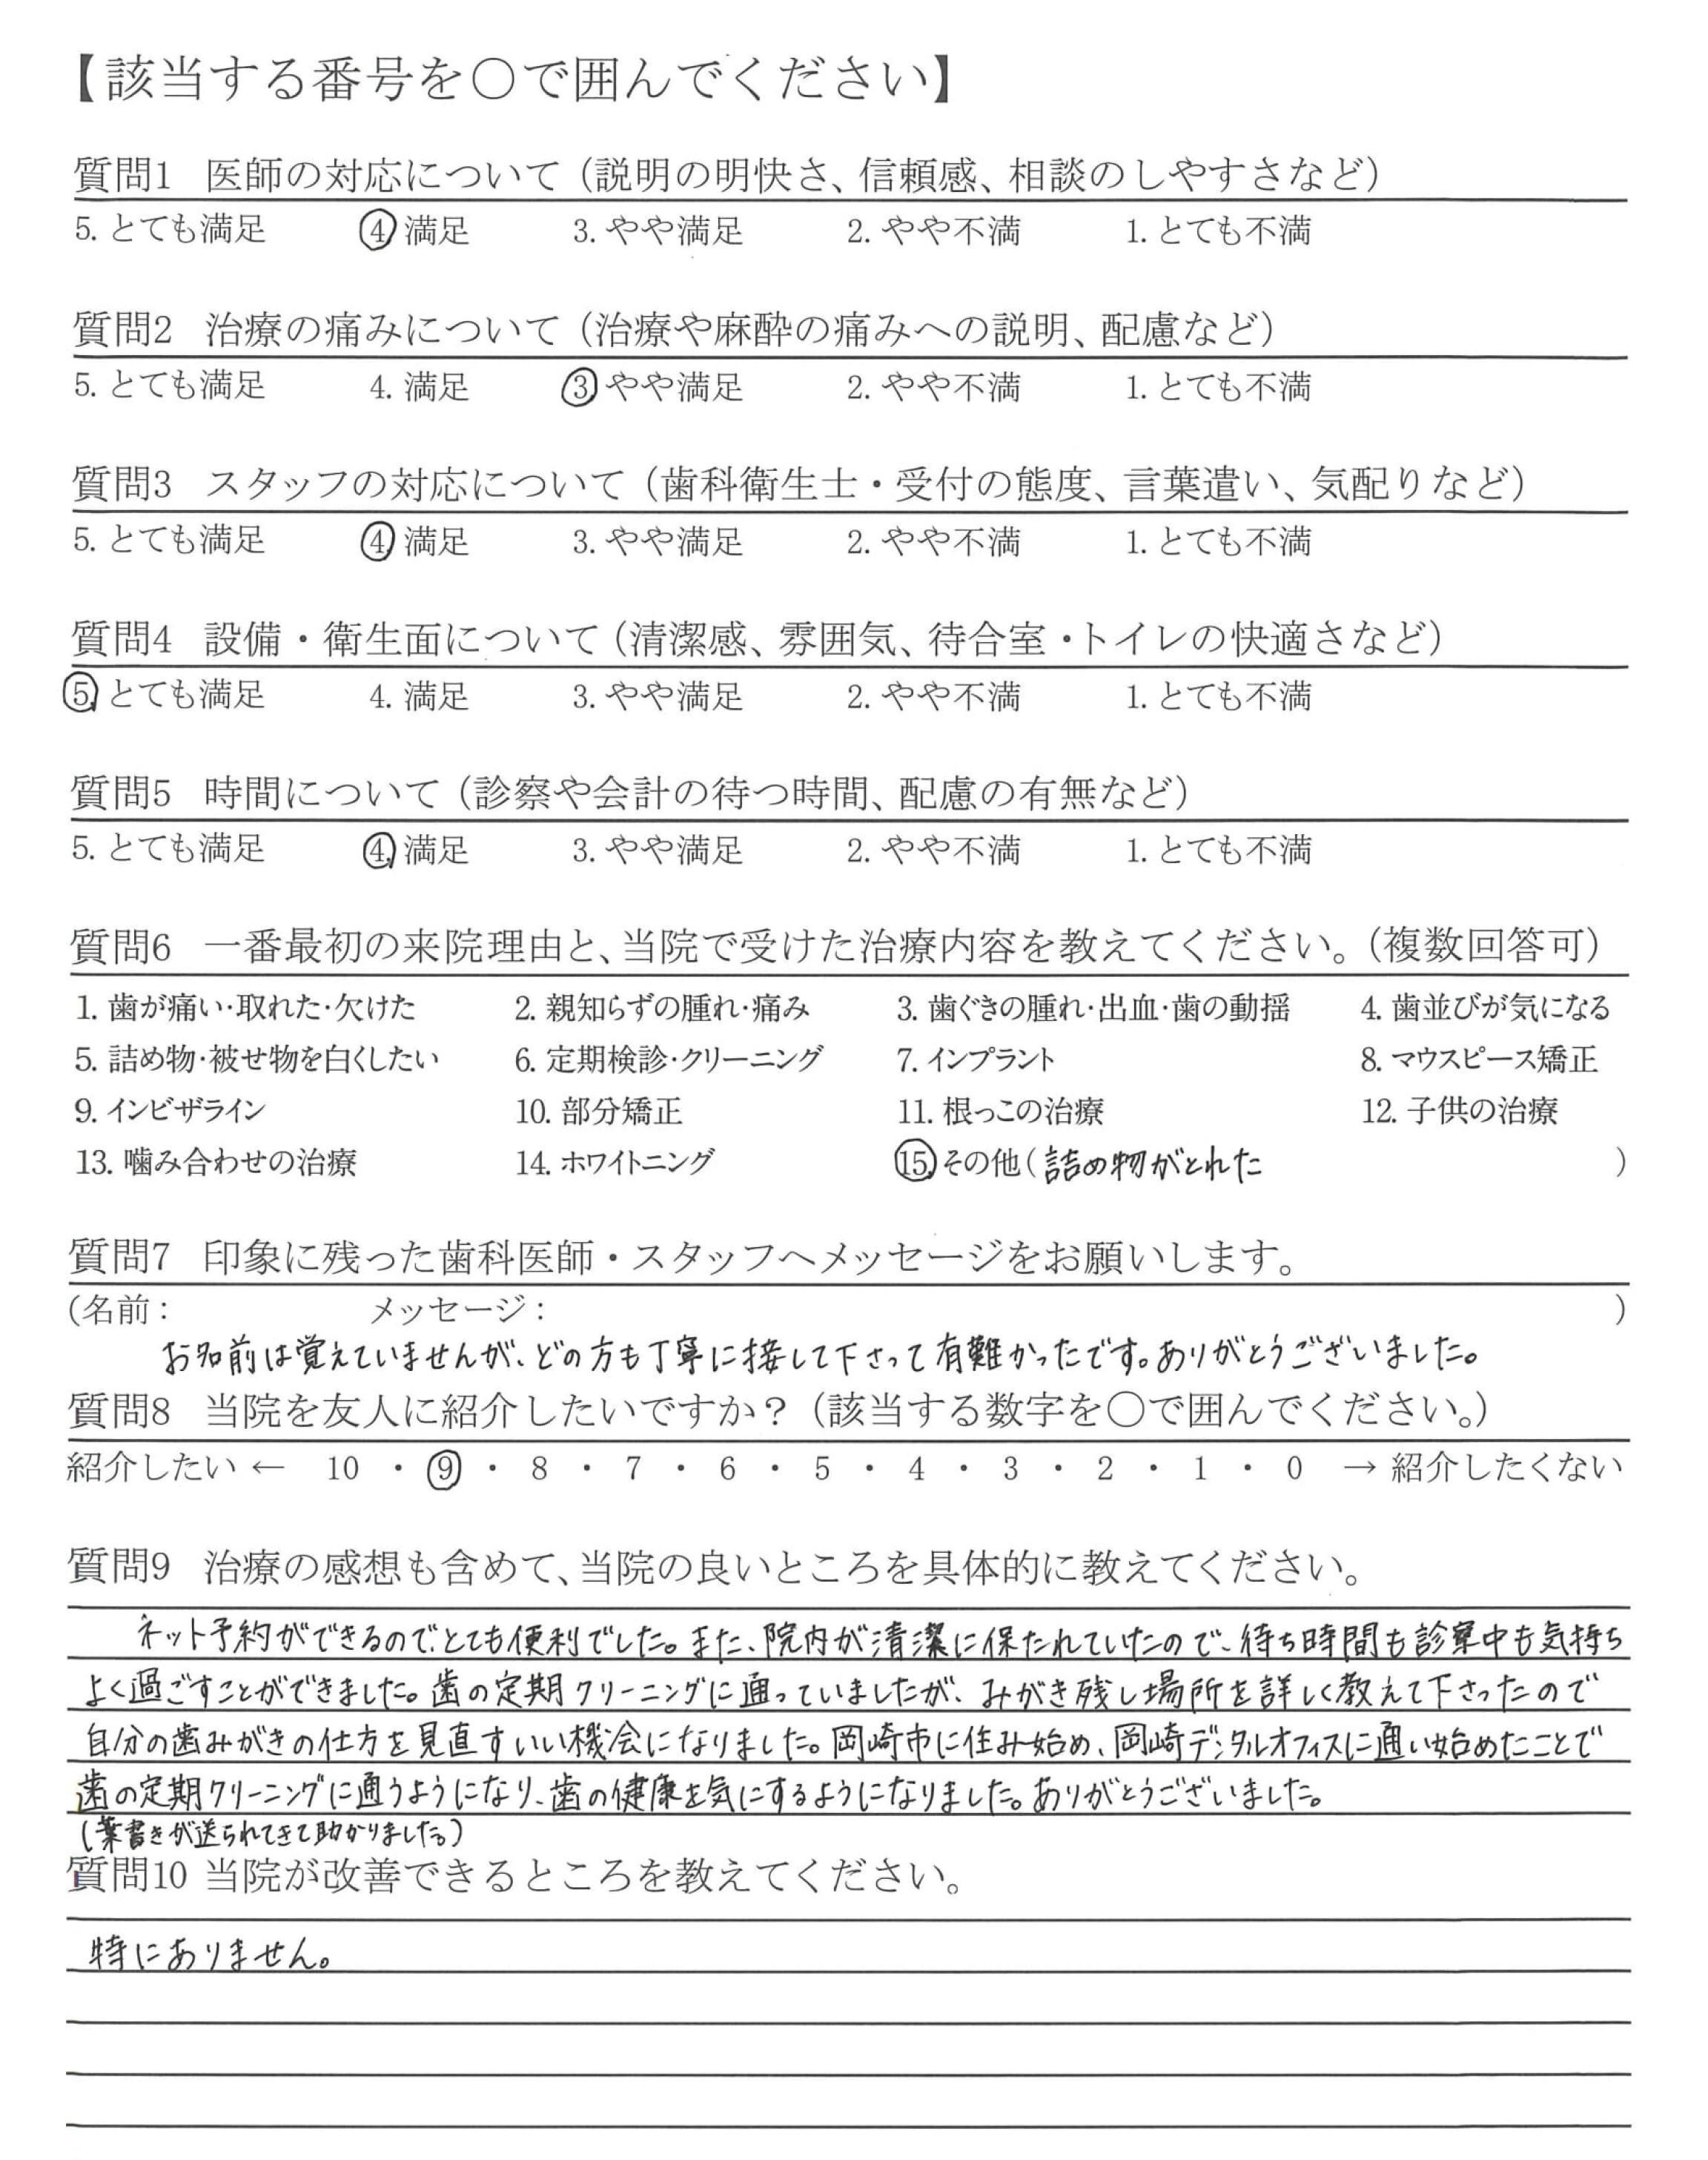 【該当する番号を○で囲んでください】
質問1 医師の対応について（説明の明快さ、信頼感、相談のしやすさなど）
5. とても満足 ④ 満足 3. やや満足 2. やや不満 1. とても不満
質問2 治療の痛みについて（治療や麻酔の痛みへの説明、配慮など）
5. とても満足 4. 満足 ③ やや満足 2. やや不満 1. とても不満
質問3 スタッフの対応について（歯科衛生士・受付の態度、言葉遣い、気配りなど）
5. とても満足 ④ 満足 3. やや満足 2. やや不満 1. とても不満
質問4 設備・衛生面について（清潔感、雰囲気、待合室・トイレの快適さなど）
⑤ とても満足 4. 満足 3. やや満足 2. やや不満 1. とても不満
質問5 時間について（診察や会計の待つ時間、配慮の有無など）
5. とても満足 ④ 満足 3. やや満足 2. やや不満 1. とても不満
質問6 一番最初の来院理由と、当院で受けた治療内容を教えてください。（複数回答可）
1. 歯が痛い・取れた・欠けた 2. 親知らずの腫れ・痛み 3. 歯ぐきの腫れ・出血・歯の動揺 4. 歯並びが気になる
5. 詰め物・被せ物を白くしたい 6. 定期検診・クリーニング 7. インプラント 8. マウスピース矯正
9. インビザライン 10. 部分矯正 11. 根っこの治療 12. 子供の治療
13. 噛み合わせの治療 14. ホワイトニング ⑮ その他（詰め物がとれた ）
質問7 印象に残った歯科医師・スタッフへメッセージをお願いします。
（名前： メッセージ： ）
お名前は覚えていませんが、どの方も丁寧に接して下さって有難かったです。ありがとうございました。
質問8 当院を友人に紹介したいですか？（該当する数字を○で囲んでください。）
紹介したい ← 10 ・ ⑨ ・ 8 ・ 7 ・ 6 ・ 5 ・ 4 ・ 3 ・ 2 ・ 1 ・ 0 → 紹介したくない
質問9 治療の感想も含めて、当院の良いところを具体的に教えてください。
ネット予約ができるので、とても便利でした。また、院内が清潔に保たれていたので、待ち時間も診察中も気持ち
よく過ごすことができました。歯の定期クリーニングに通っていましたが、みがき残し場所を詳しく教えて下さったので
自分の歯みがきの仕方を見直すいい機会になりました。岡崎市に住み始め、岡崎デジタルオフィスに通い始めたことで
歯の定期クリーニングに通うようになり、歯の健康を気にするようになりました。ありがとうございました。
（葉書きが送られてきて助かりました。）
質問10 当院が改善できるところを教えてください。
特にありません。